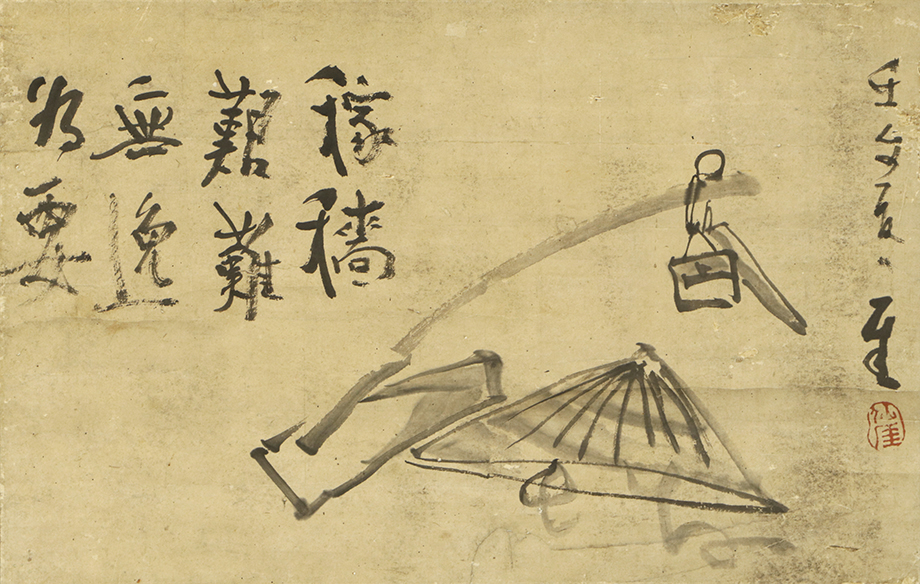 壬午夏日 厓
仙厓
稼穡
艱難
無逸
為要